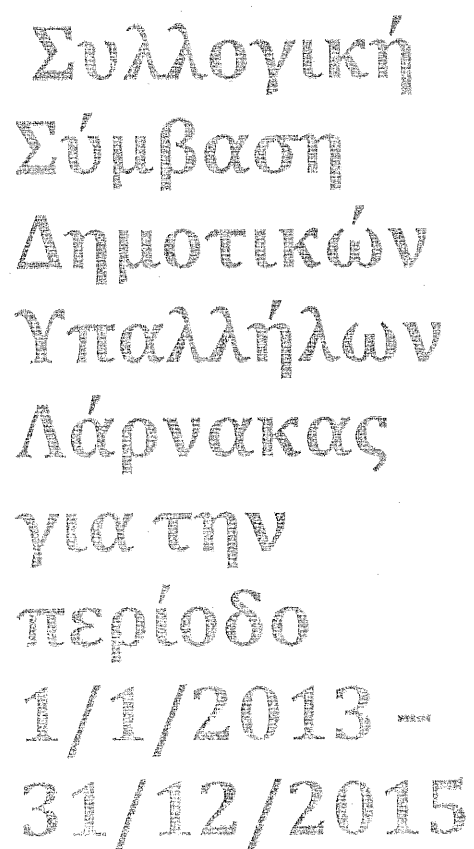 Συλλογική
Σύμβαση
Δημοτικών
Υπαλλήλων
Λάρνακας
για την
περίοδο
1/1/2013 –
31/12/2015